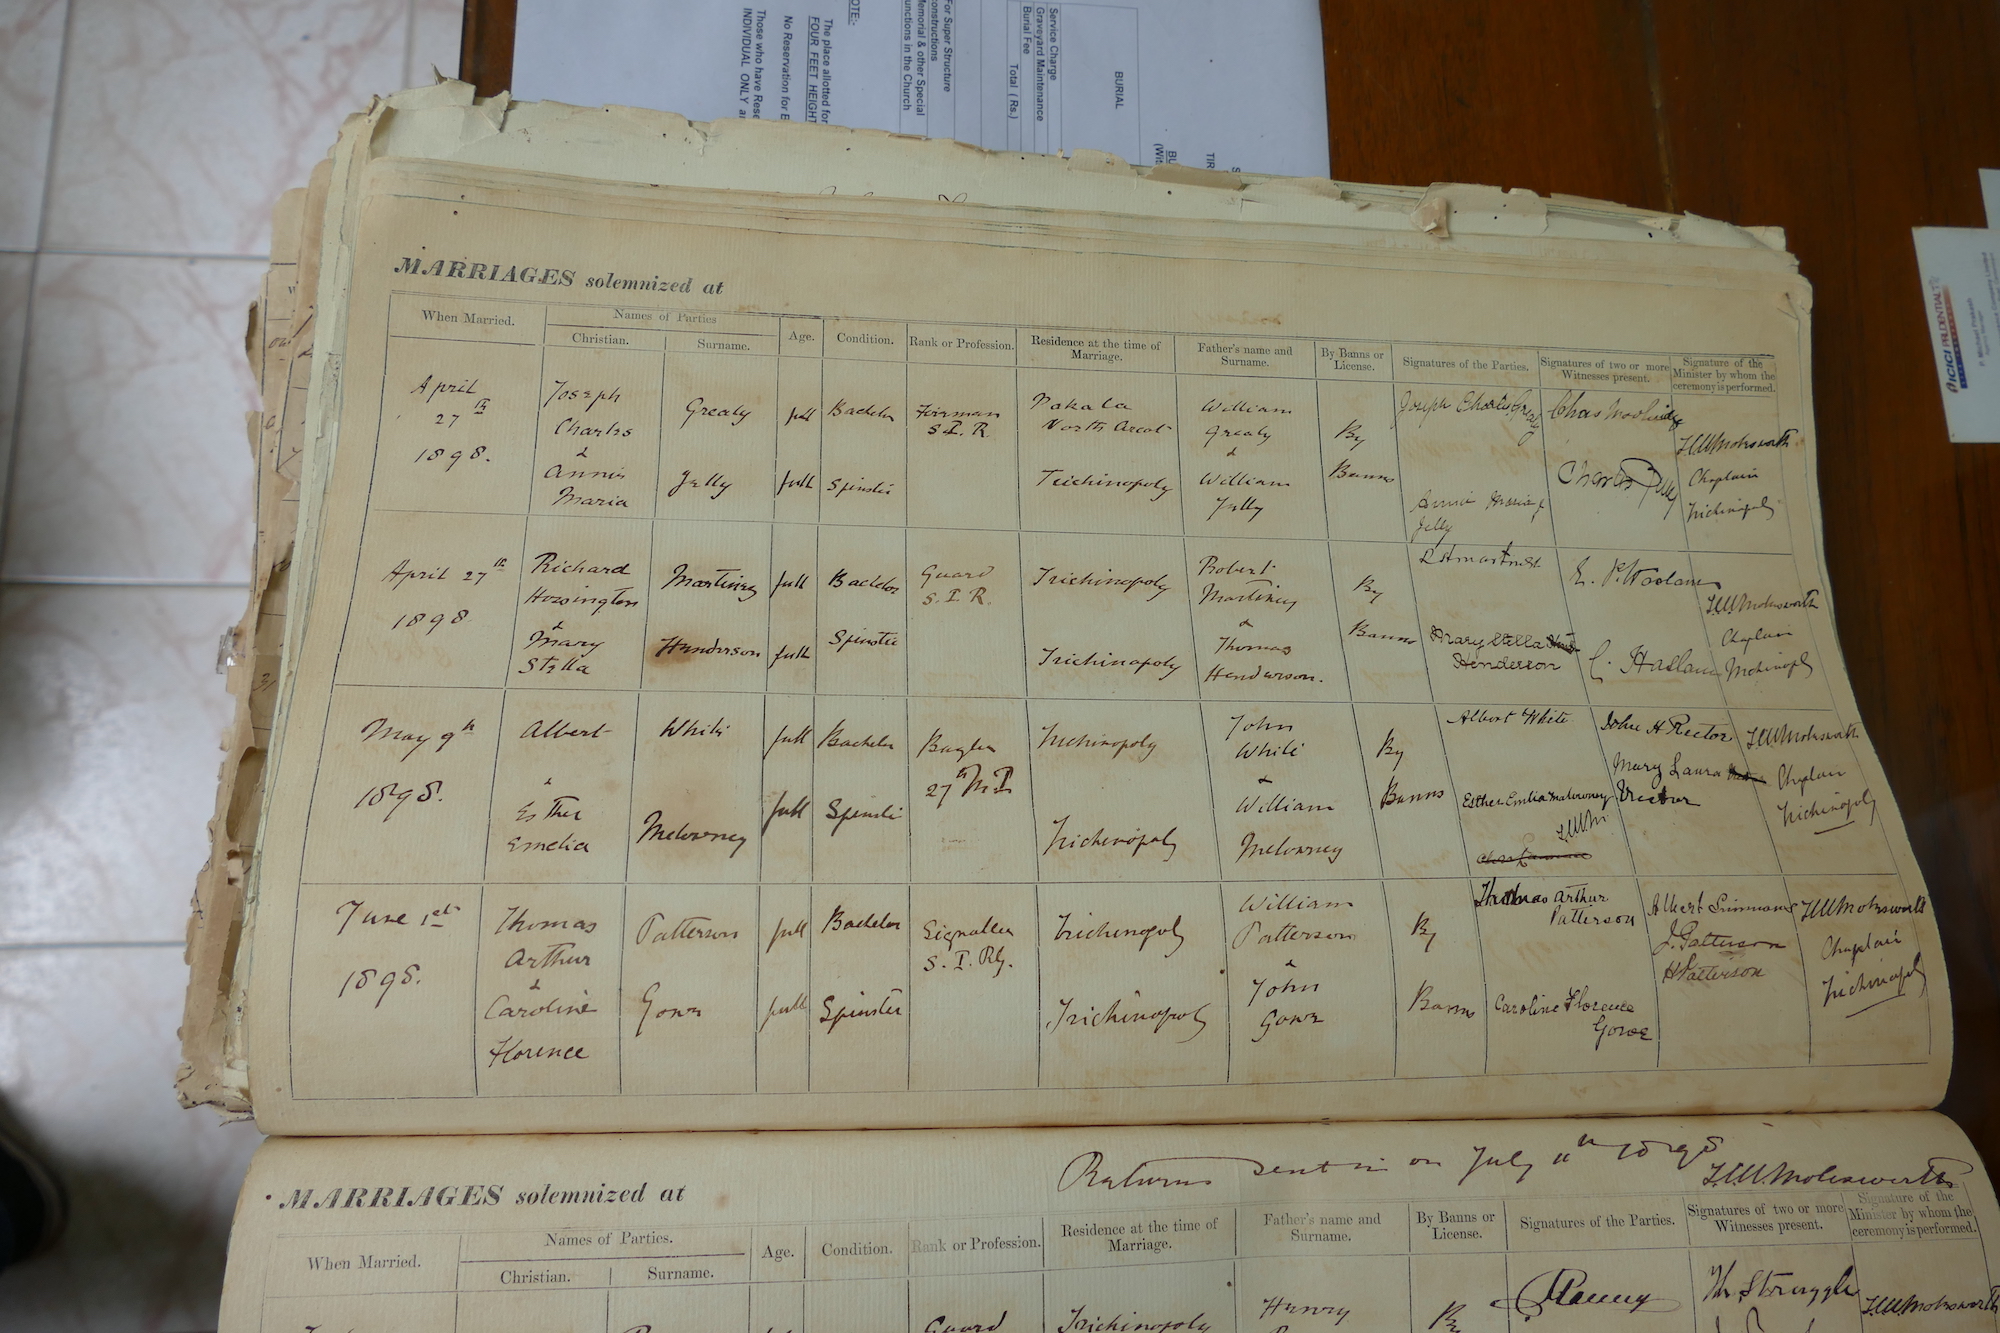 BURIAL
Service Charge
Graveyard Maintenance
Burial Fee
Total ( Rs.)
For Super Structure
constructions
Memorial & other Special
functions in the Church
NOTE:-
The place allotted for
FOUR FEET HEIGHT
No Reservation for B
Those who have Rese
INDIVIDUAL ONLY a
ICICI PRUDENTIAL
MARRIAGES solemnized at
When Married.
Names of Parties
Christian.
Surname.
Age.
Condition.
Rank or Profession.
Residence at the time of
Marriage.
Father's name and
Surname.
By Banns or
License.
Signatures of the Parties.
Signatures of two or more
Witnesses present.
Signature of the
Minister by whom the
ceremony is performed.
April
27th
1898.
Joseph
Charles
&
Annie
Maria
Grealy
Jelly
full
full
Bachelor
Spinster
Fireman
S.I.R
Pakala
North Arcot
Trichinopoly
William
Grealy
&
William
Jelly
By
Banns
Joseph Charles Grealy
Annie Maria
Jelly
Charles Jelly
Molesworth
Chaplain
Trichinopoly
April 27th
1898
Richard
&
Mary
Stella
Martinez
Henderson
full
full
Bachelor
Spinster
Guard
S.I.R.
Trichinopoly
Trichinopoly
Robert
Martinez
&
Thomas
Henderson.
By
Banns
Mary Stella
Henderson
C. Haslam
Molesworth
Chaplain
Trichinopoly
May 9th
1898.
Albert
&
Esther
Emelia
White
Melowney
full
full
Bachelor
Spinster
Bugler
27th M I
Trichinopoly
Trichinopoly
John
White
&
William
Melowney
By
Banns
Albert White
Esther Emelia Melowney
John H Rector
Mary Laura
Rector
Molesworth
Chaplain
Trichinopoly
June 1st
1898.
Thomas
Arthur
&
Caroline
Florence
Patterson
Gowe
full
full
Bachelor
Spinster
Signaller
S. I. Rly.
Trichinopoly
Trichinopoly
William
Patterson
&
John
Gowe
By
Banns
Thomas Arthur
Patterson
Caroline Florence
Gowe
Albert Simmons
J. Patterson
H Patterson
Molesworth
Chaplain
Trichinopoly
Returns sent in on July 11th 1898
Molesworth
MARRIAGES solemnized at
When Married.
Names of Parties.
Christian.
Surname.
Age.
Condition.
Rank or Profession.
Residence at the time of
Marriage.
Father's name and
Surname.
By Banns or
License.
Signatures of the Parties.
Signatures of two or more
Witnesses present.
Signature of the
Minister by whom the
ceremony is performed.
Guard
Trichinopoly
Henry
By
Molesworth